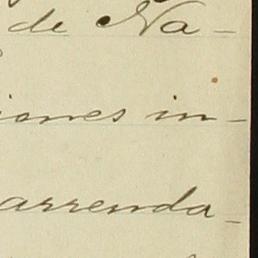 de Na-
iones in-
arrenda-